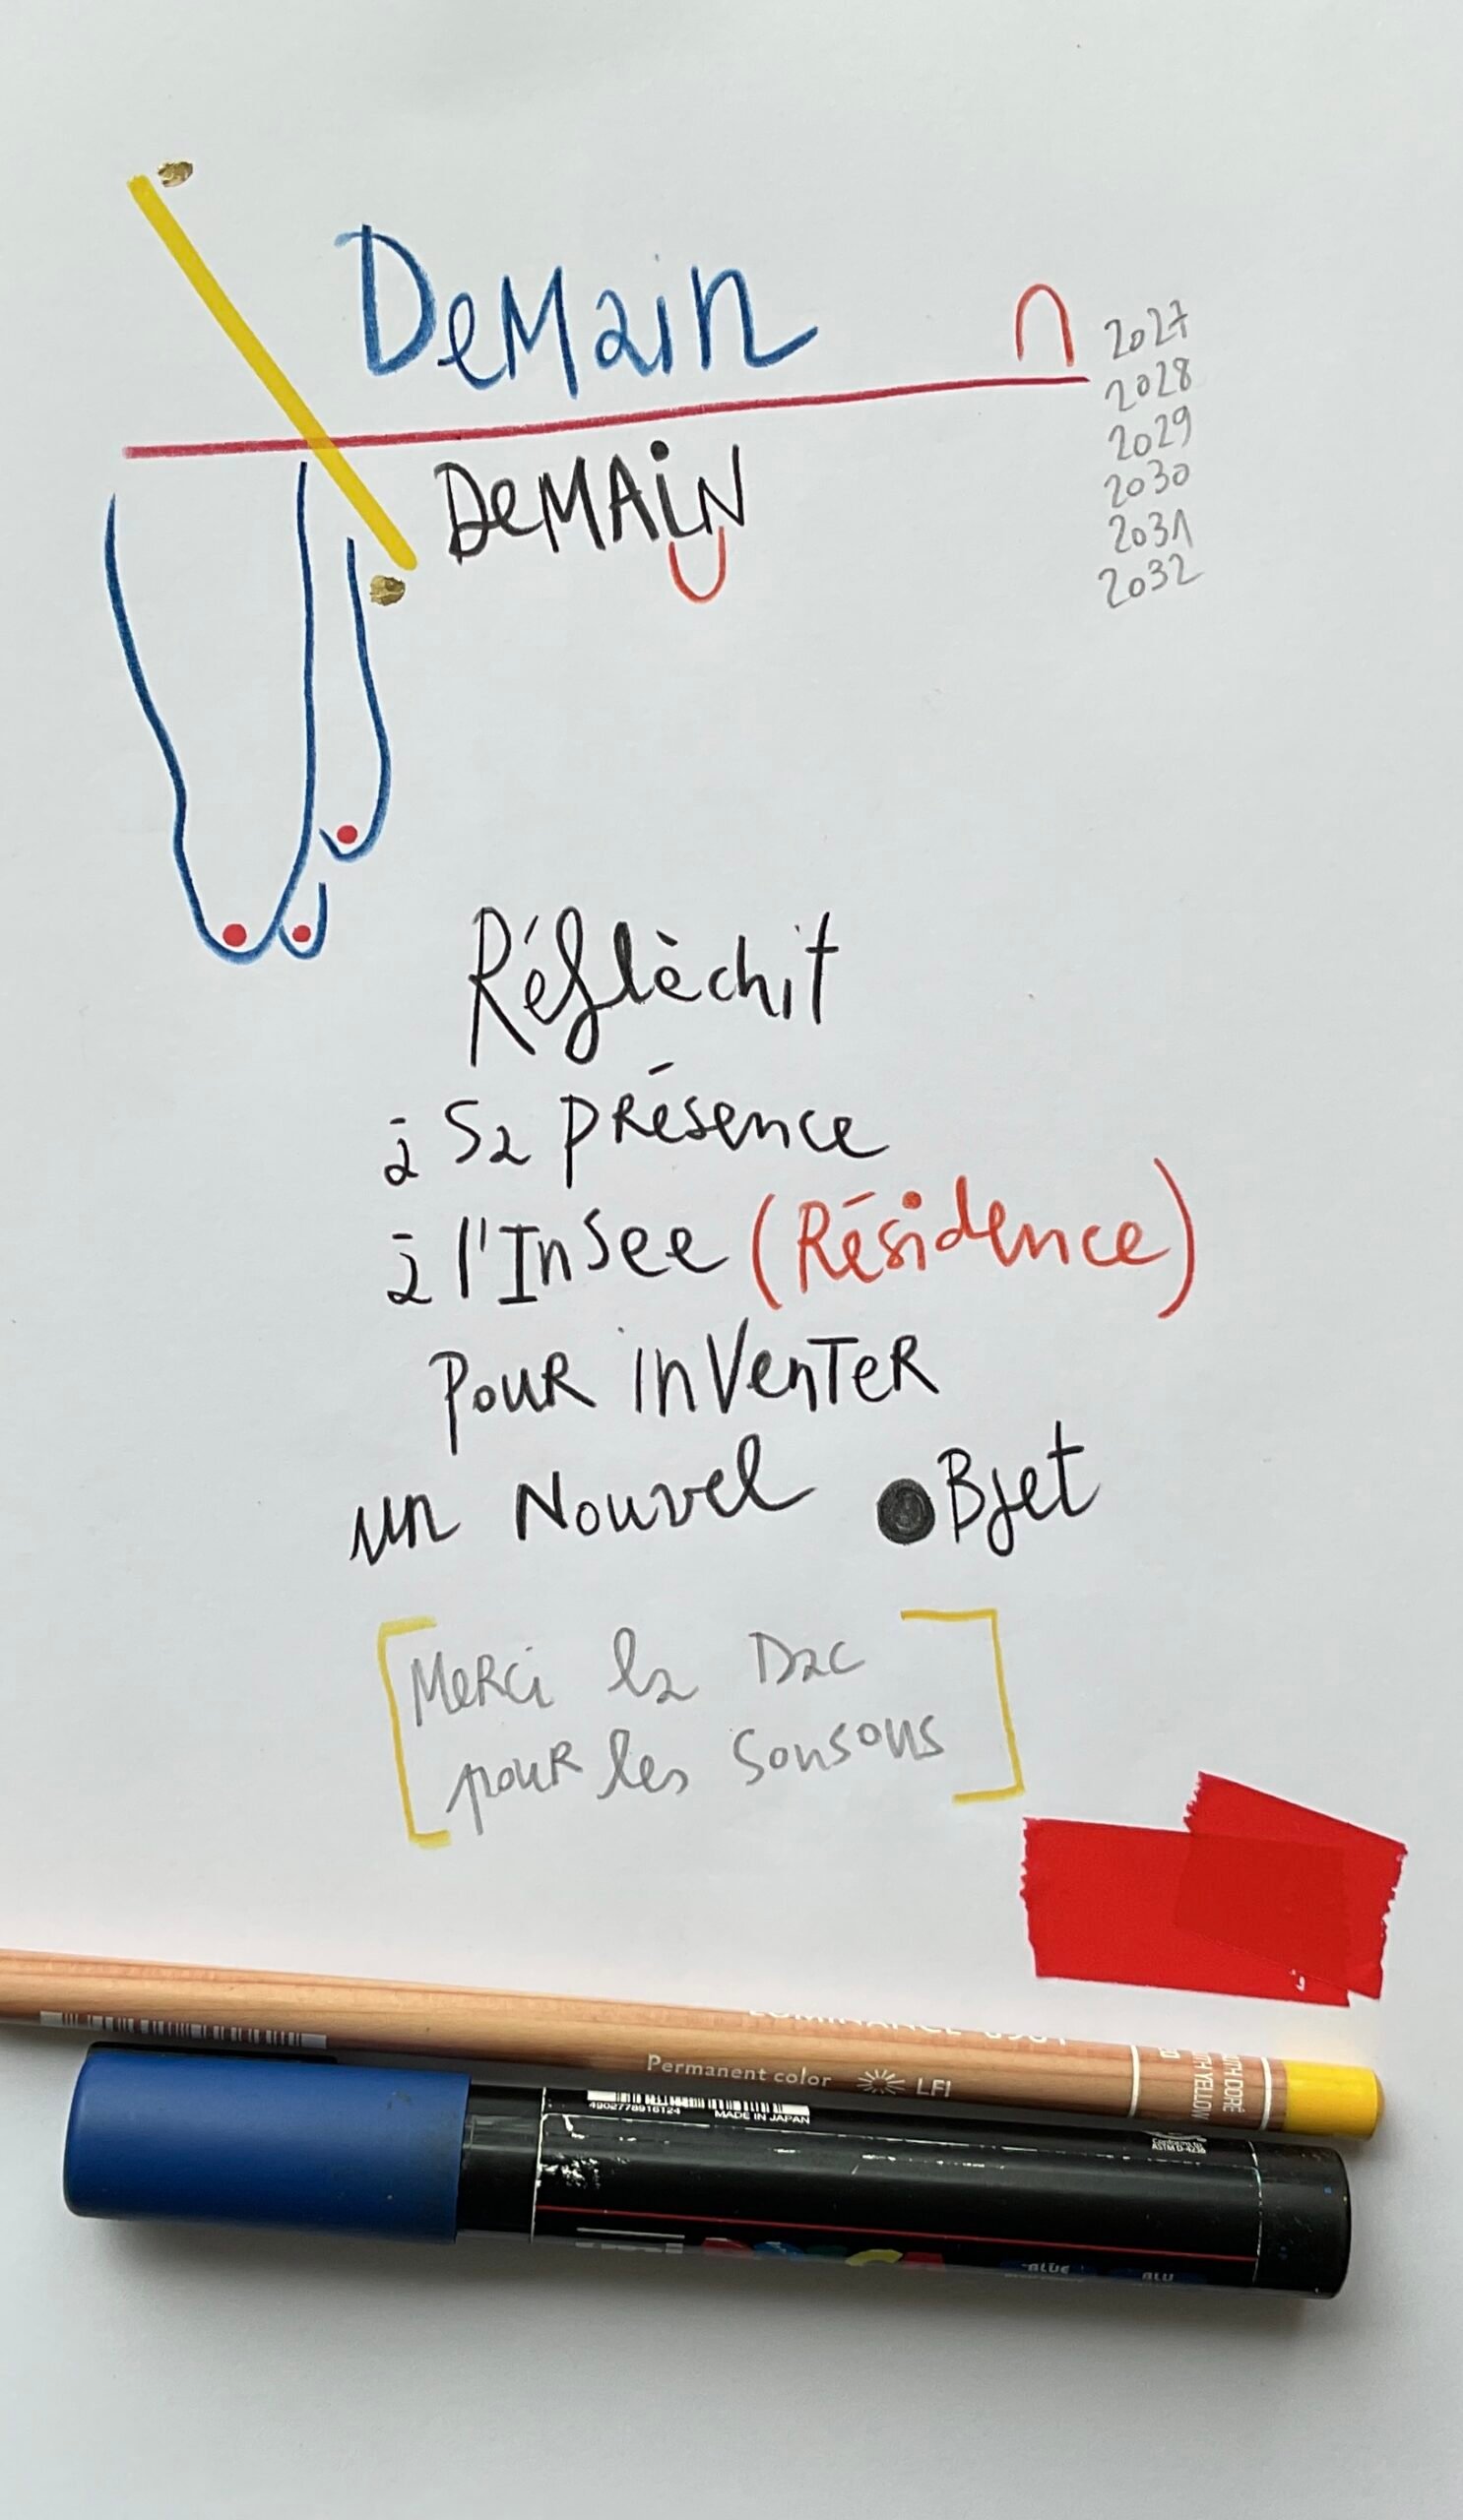 DeMain
2027
2028
2029
2030
2031
2032
DeMAiN
Réflèchit
à Sa présence
à l'Insee (Résidence)
pouR inVenTeR
un Nouvel ●Bjet
[MeRci la Dac
pouR les Sousous]
Permanent color LFI
4902778916124 MADE IN JAPAN
BLUE